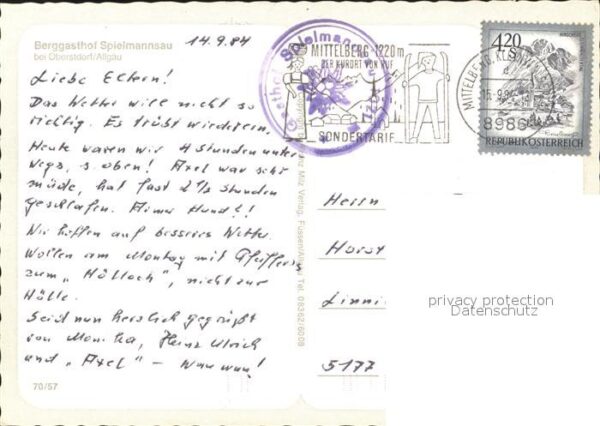 Berggasthof Spielmannsau
bei Oberstdorf/Allgäu
14.9.84
Liebe Eltern!
Das Wetter will nicht so
richtig. Es trübt wiederum.
Heute waren wir 4 Stunden unter
wegs, s. oben! Axel war sehr
müde, hat fast 2 1/2 Stunden
geschlafen. Armer Hund!!
Wir hoffen auf besseres Wetter.
Wollen am Montag mit
zum "Hölloch", nicht zur
Hölle.
Seid nun herzlich gegrüßt
von Monika, Heinz Ulrich
und "Axel" - Wau wau!
70/57
Milz Verlag, Füssen/Allgäu Tel. 08362/6008
Spielmannsau
MITTELBERG 1220 m
DER KURORT VON RUF
SONDERTARIF
MITTELBERG, KLEINW
15.-9.84
8986
4.20
REPUBLIK ÖSTERREICH
Herrn
Horst
Linni
5177
privacy protection
Datenschutz